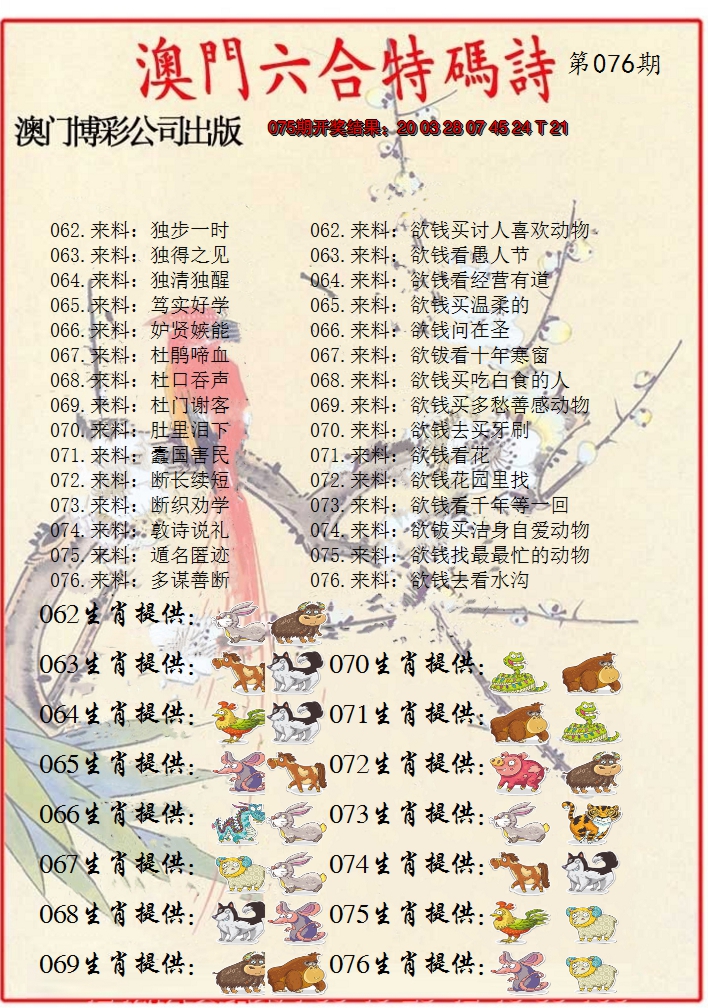 澳門六合特碼詩 第076期
澳门博彩公司出版 075期开奖结果：20 03 28 07 45 24 T 21
062.来料：独步一时 062.来料：欲钱买讨人喜欢动物
063.来料：独得之见 063.来料：欲钱看愚人节
064.来料：独清独醒 064.来料：欲钱看经营有道
065.来料：笃实好学 065.来料：欲钱买温柔的
066.来料：妒贤嫉能 066.来料：欲钱问在圣
067.来料：杜鹃啼血 067.来料：欲钹看十年寒窗
068.来料：杜口吞声 068.来料：欲钱买吃白食的人
069.来料：杜门谢客 069.来料：欲钱买多愁善感动物
070.来料：肚里泪下 070.来料：欲钱去买牙刷
071.来料：蠹国害民 071.来料：欲钱看花
072.来料：断长续短 072.来料：欲钱花园里找
073.来料：断织劝学 073.来料：欲钱看千年等一回
074.来料：敦诗说礼 074.来料：欲钹买洁身自爱动物
075.来料：遁名匿迹 075.来料：欲钱找最最忙的动物
076.来料：多谋善断 076.来料：欲钱去看水沟
062生肖提供：
063生肖提供： 070生肖提供：
064生肖提供： 071生肖提供：
065生肖提供： 072生肖提供：
066生肖提供： 073生肖提供：
067生肖提供： 074生肖提供：
068生肖提供： 075生肖提供：
069生肖提供： 076生肖提供：